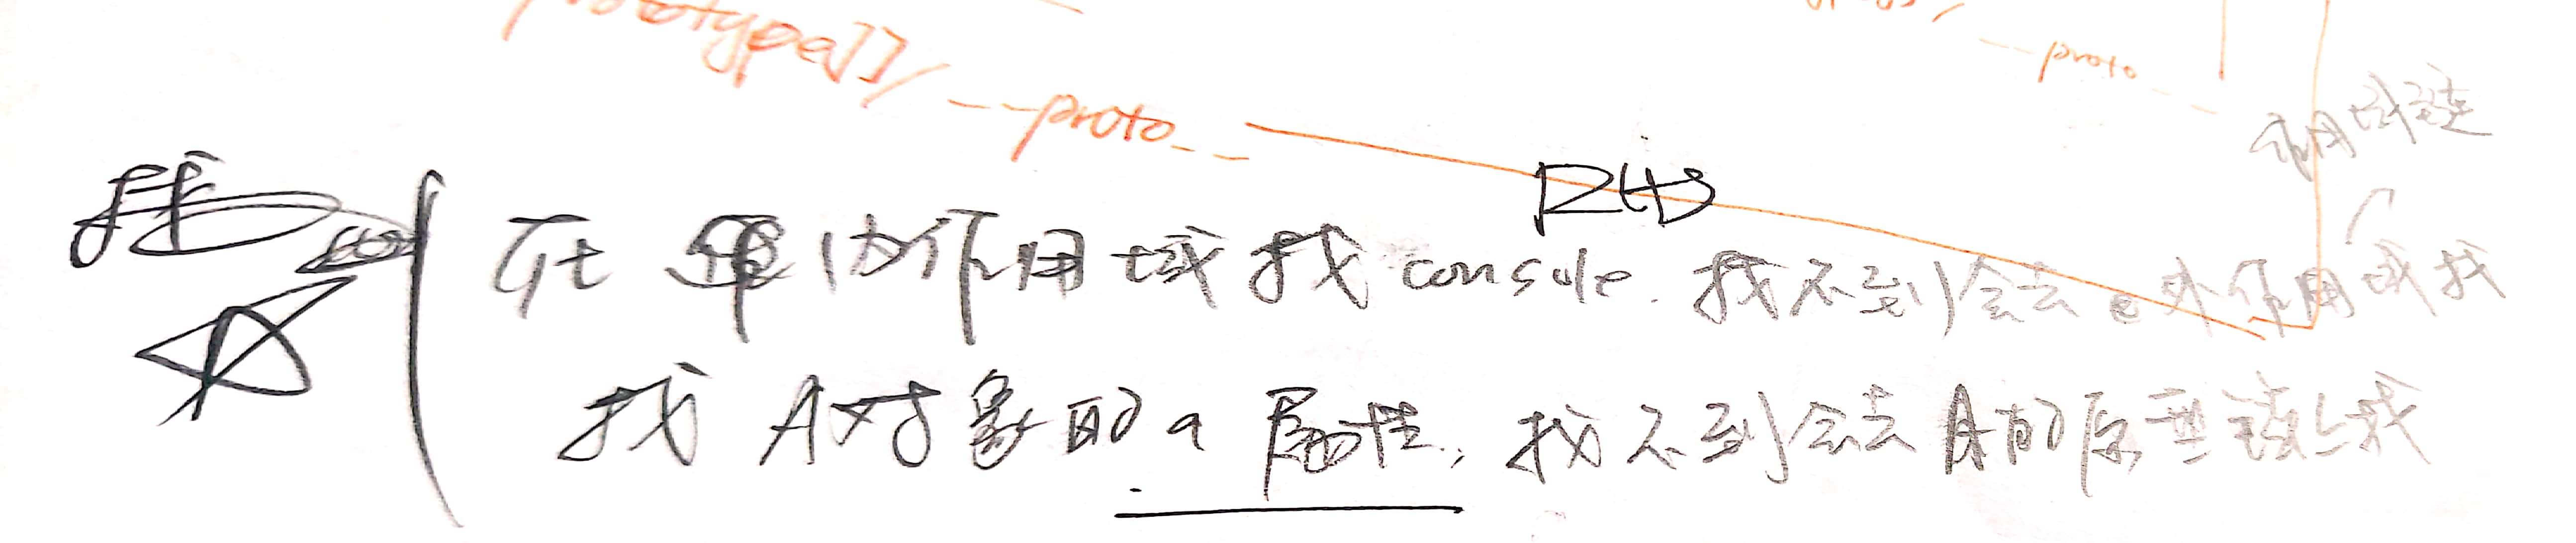 prototype]]/ __proto__
__proto__
作用域链
RHS
在 作用域找 console. 找不到会去 外作用域找
找 A对象的 a 属性, 找不到会去 A的原型链上找